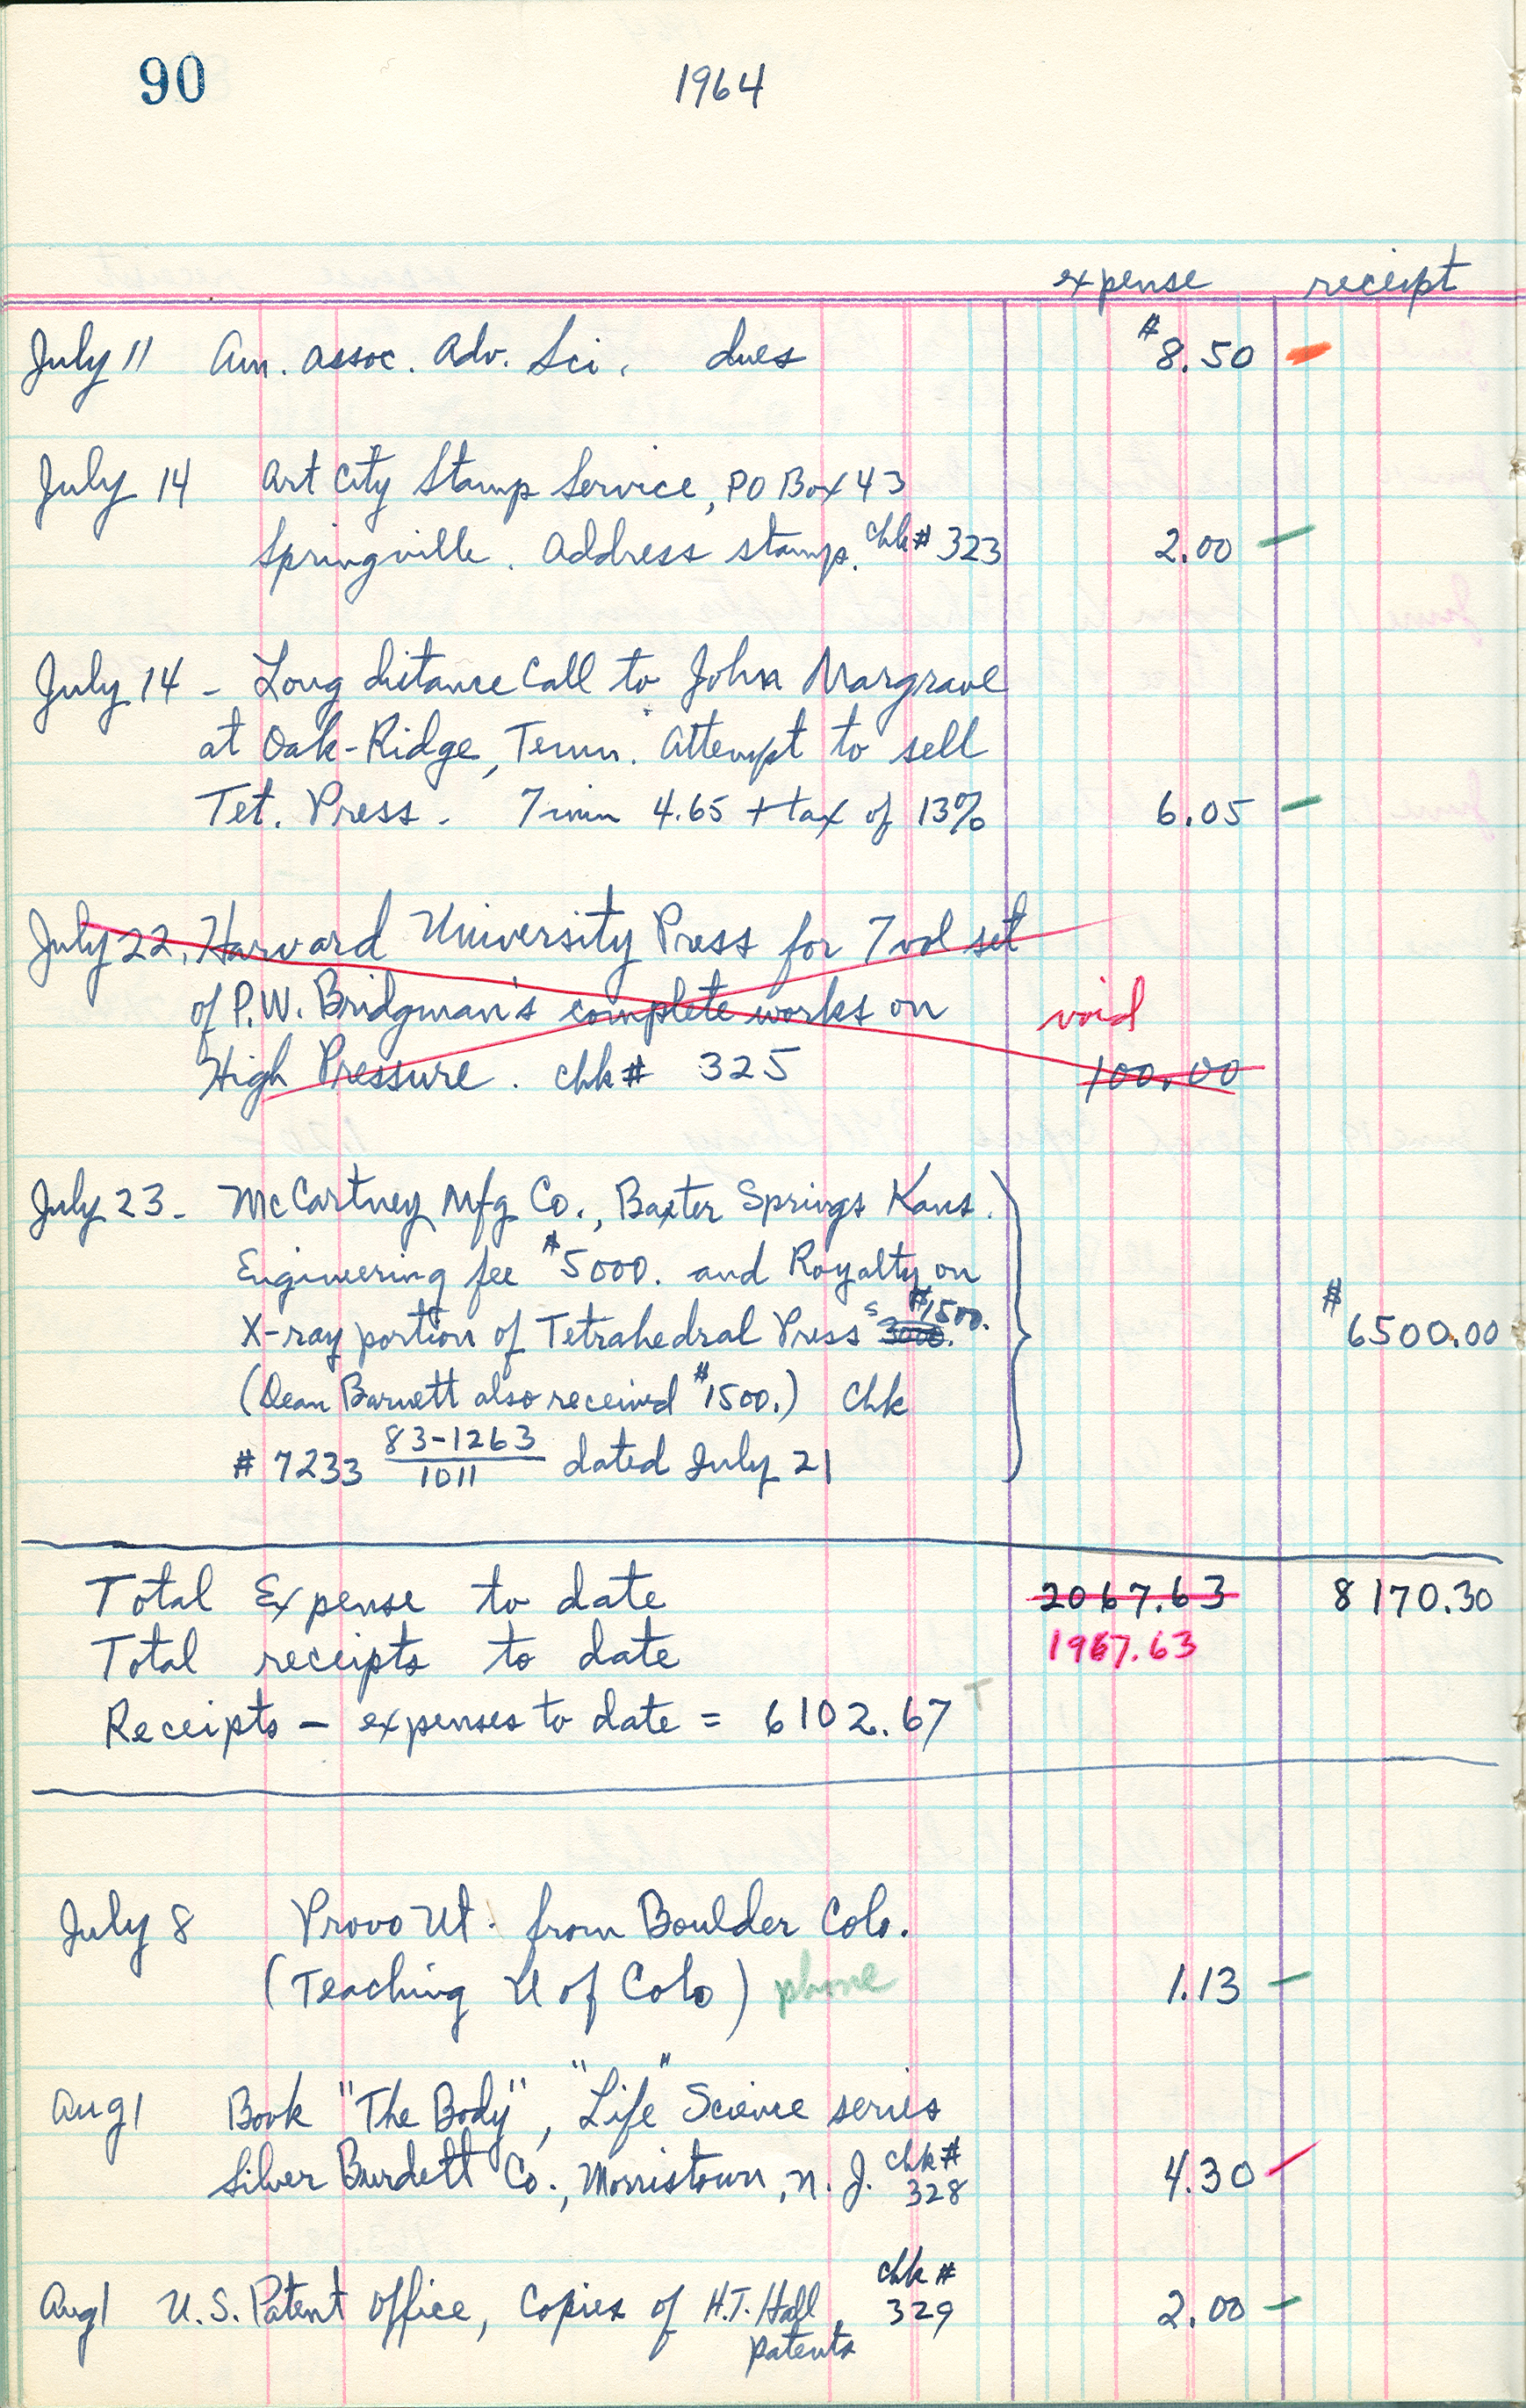 90
1964
expense receipt
July 11 Am. Assoc. Adv. Sci. dues $8.50
July 14 Art City Stamp Service, PO Box 43
Springville. Address stamp. Chk# 323 2.00
July 14 - Long distance Call to John Margrave
at Oak-Ridge, Tenn. Attempt to sell
Tet. Press - 7 min 4.65 + tax of 13% 6.05
July 22, Harvard University Press for 7 vol set
of P.W. Bridgman's complete works on void
High Pressure. chk# 325 100.00
July 23 - McCartney Mfg Co., Baxter Springs Kans.
Engineering fee $5000. and Royalty on
X-ray portion of Tetrahedral Press $3000. $1500. $6500.00
(Dean Barnett also received $1500.) Chk
# 7233 83-1263/1011 dated July 21
Total Expense to date 2067.63 8170.30
Total receipts to date 1967.63
Receipts - expenses to date = 6102.67 T
July 8 Provo Ut. from Boulder Colo.
(Teaching U of Colo) phone 1.13
Aug 1 Book "The Body", "Life" Science series
Silver Burdett Co., Morristown, N.J. chk# 328 4.30
Aug 1 U.S. Patent Office, Copies of H.T. Hall chk# 329 2.00
patents